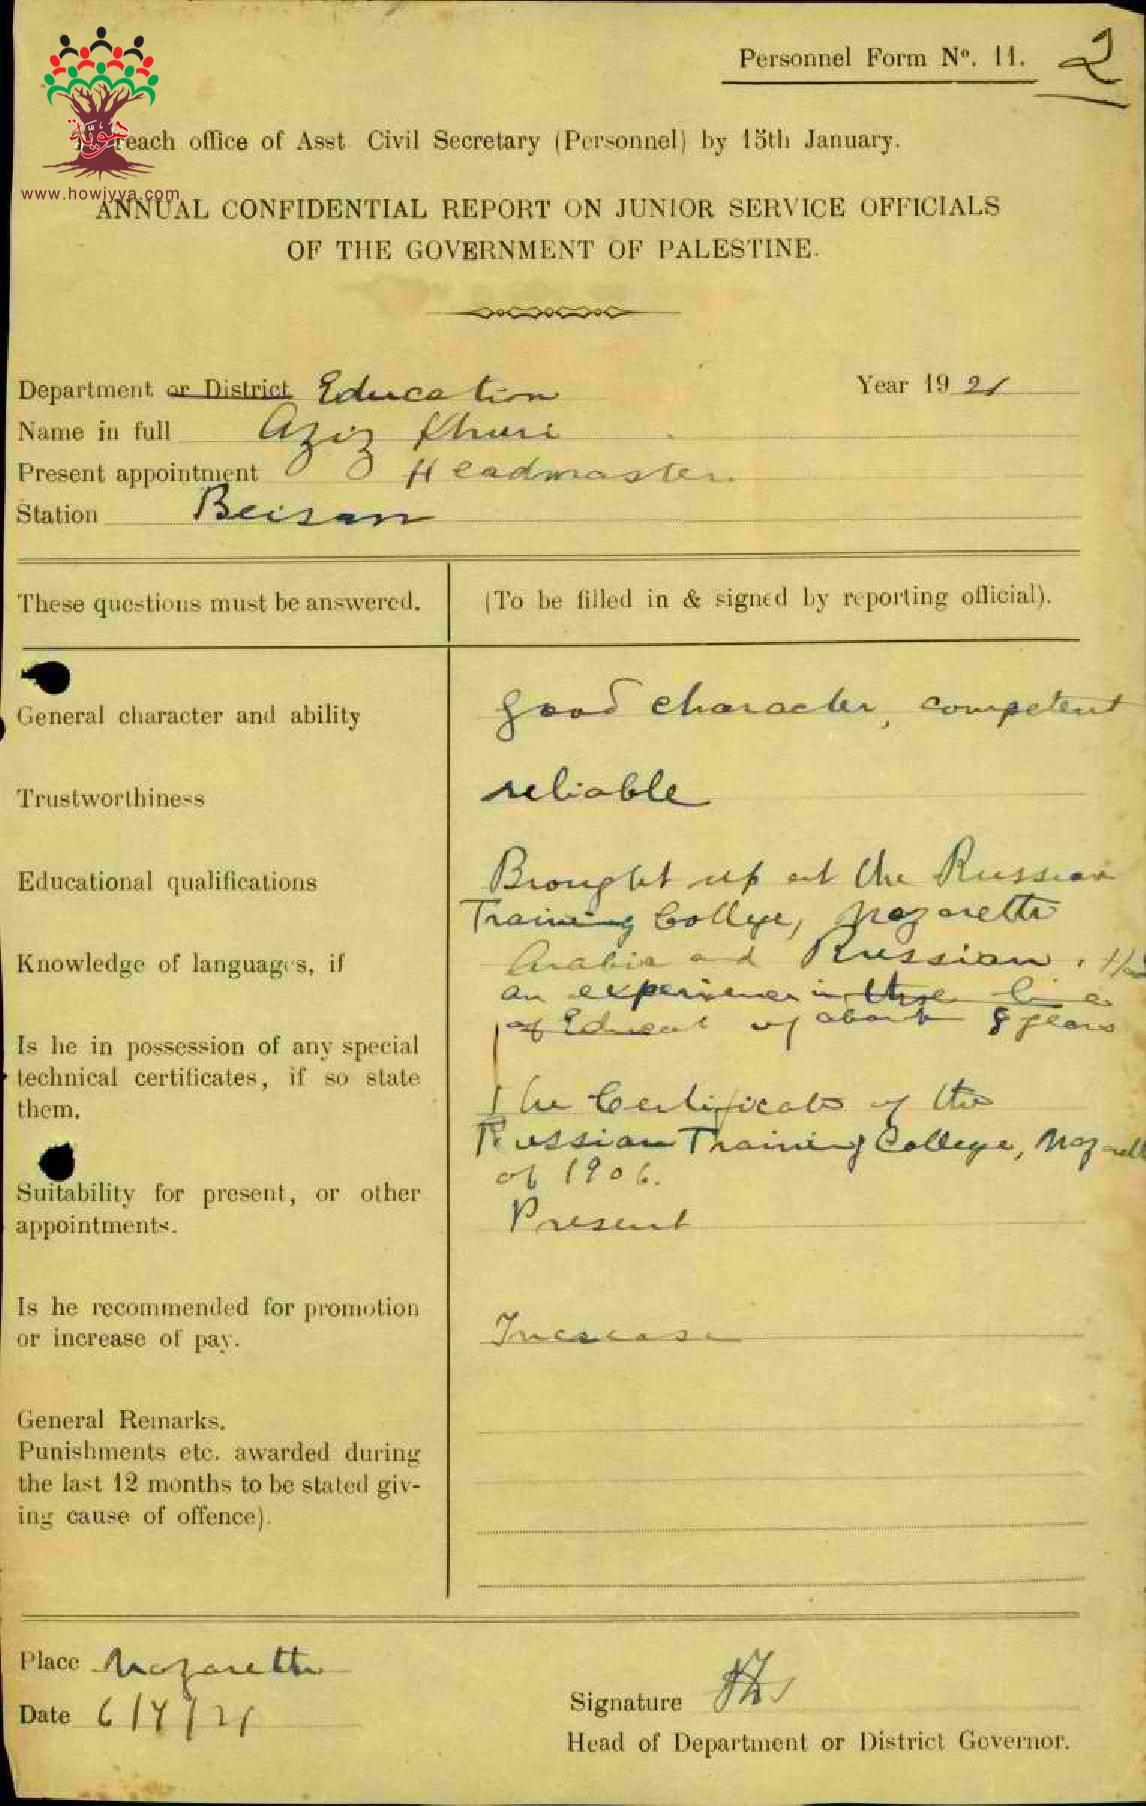 Personnel Form Nº. 11.
2
reach office of Asst Civil Secretary (Personnel) by 15th January.
هويّة
www.howiyya.com
ANNUAL CONFIDENTIAL REPORT ON JUNIOR SERVICE OFFICIALS
OF THE GOVERNMENT OF PALESTINE.
Department or District Education
Year 1921
Name in full Aziz Khuri
Present appointment Headmaster.
Station Beisan
These questions must be answered.
(To be filled in & signed by reporting official).
General character and ability
good character, competent
Trustworthiness
reliable
Educational qualifications
Brought up at the Russian
Training College, Nazareth
Knowledge of languages, if
Arabic and Russian.
an experience in these line
of Educat of about 8 years
Is he in possession of any special
technical certificates, if so state
them.
The Certificate of the
Russian Training College, Nazareth
of 1906.
Suitability for present, or other
appointments.
Present
Is he recommended for promotion
or increase of pay.
Increase
General Remarks.
Punishments etc. awarded during
the last 12 months to be stated giv-
ing cause of offence).
Place Nazareth
Date 6/4/21
Signature
Head of Department or District Governor.